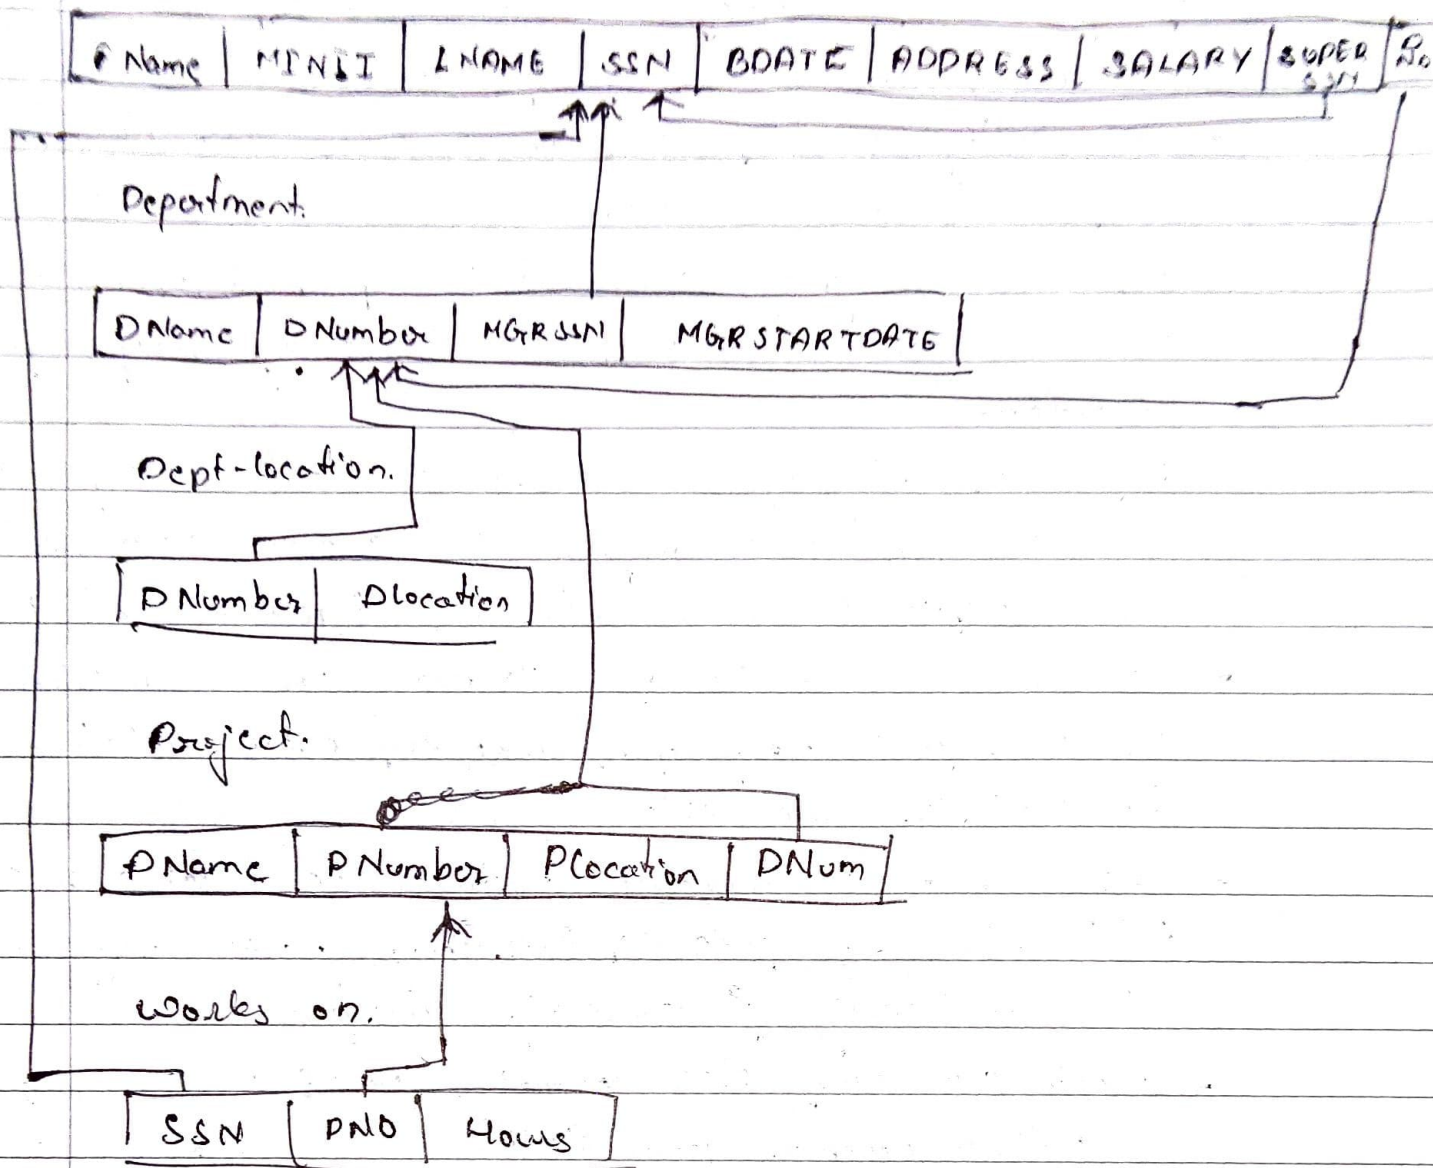 FName MINIT LNAME SSN BDATE ADDRESS SALARY SUPER
SSN
Department.
DName DNumber MGRSSN MGRSTARTDATE
Dept-location.
DNumber Dlocation
Project.
PName PNumber Plocation DNum
Works on.
SSN PNO Hours